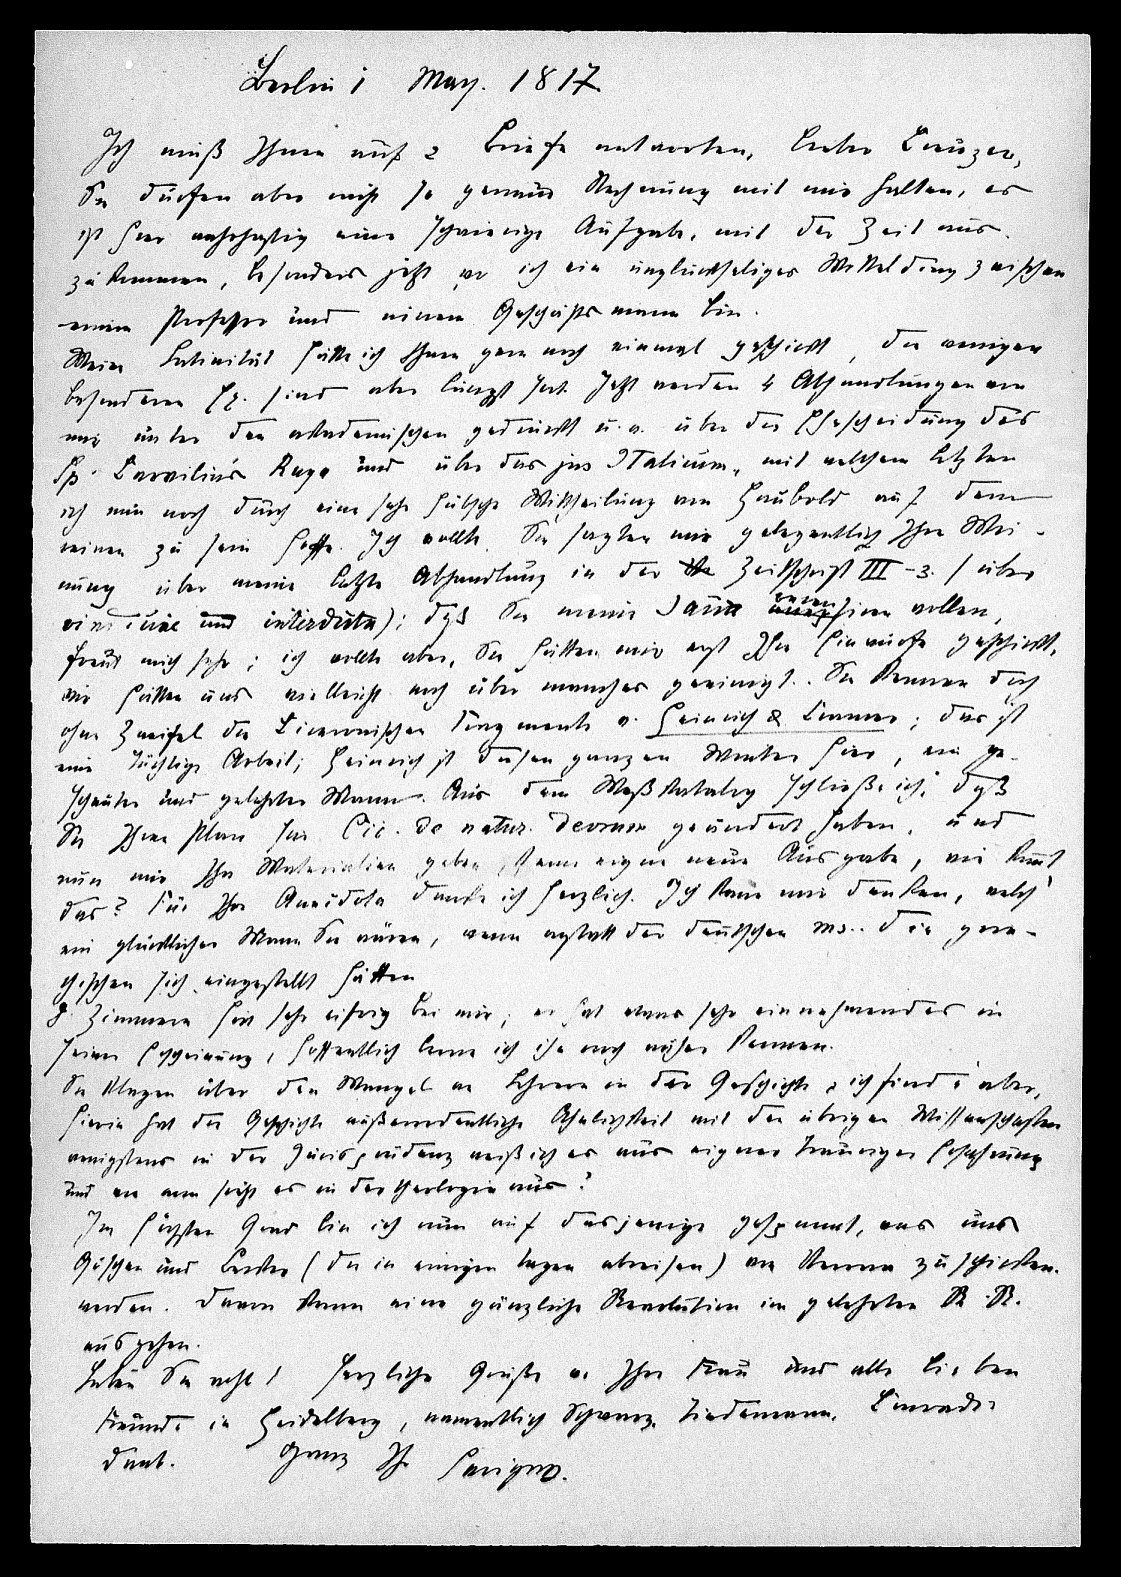 Berlin 1 May. 1817.
Ich muß Ihnen auf 2 Briefe antworten, lieber Creuzer,
Sie dürfen aber nicht so genaue Rechnung mit mir halten, es
ist hier wahrhaftig eine schwierige Aufgabe, mit der Zeit aus-
zukommen, besonders jetzt, wo ich ein unglückseliges Mittelding zwischen
einem Professor und einem Geschäftsmann bin.
Meine Latinität hätte ich Ihnen gern noch einmal geschickt, die wenigen
besonderen Ex. sind aber längst fort. Jetzt werden 4 Abhandlungen von
mir unter den akademischen gedruckt u. a. über die Ehescheidung des
Sp. Carvilius Ruga und über das jus Italicum, mit welchem letzten
ich nun noch durch eine sehr hübsche Mittheilung von Haubold auf dem
reinen zu sein hoffe. Ich wollte, Sie sagten mir gelegentlich Ihre Mei-
nung über meine letzte Abhandlung in der Zeitschrift III-3. (über
vindiciae und interdicta); daß Sie meine wollen,
freut mich sehr; ich wollte aber, Sie hätten mir erst Ihre Einwürfe geschickt,
wir hätten uns vielleicht noch über manches geeinigt. Sie kennen doch
ohne Zweifel die Ciceronischen Fragmente v. Heinrich & Cramer; das ist
eine tüchtige Arbeit; Heinrich ist diesen ganzen Winter hier, ein ge-
scheuter und gelehrter Mann. Aus dem Meßkatalog schließe ich, daß
Sie Ihren Plan zu Cic. de natur. deorum geändert haben, und
nun nur Ihre Materialien geben, keine eigne neue Ausgabe, wie kömt
das? Für Ihre Anecdota danke ich herzlich. Ich kann mir denken, welch
ein glücklicher Mann Sie wären, wenn anstatt der deutschen ms. die grie-
chischen sich eingestellt hätten
Zimmern hört sehr eifrig bei mir; er hat etwas sehr einnehmendes in
seiner Erscheinung, hoffentlich lerne ich ihn noch näher kennen.
Sie klagen über den Mangel an Lehrern in der Geschichte, ich finde aber,
hierin hat die Geschichte außerordentliche Ähnlichkeit mit den übrigen Wissenschaften
wenigstens in der Jurisprudenz weiß ich es aus eigner trauriger Erfahrung
und wie sieht es in der theologie aus?
Im höchsten Grad bin ich nun auf dasjenige gespannt, was uns
Göschen und Becker (die in einigen tagen abreisen) von Verona zuschicken
werden. Davon kann eine gänzliche Revolution im gelehrten R. R.
ausgehen.
Leben Sie wohl! Herzliche Grüße an Ihre Frau und alle lieben
Freunde in Heidelberg, namentlich Schwarz, Tiedemann, Conradi,
Daub. Ganz Ihr Savigny.